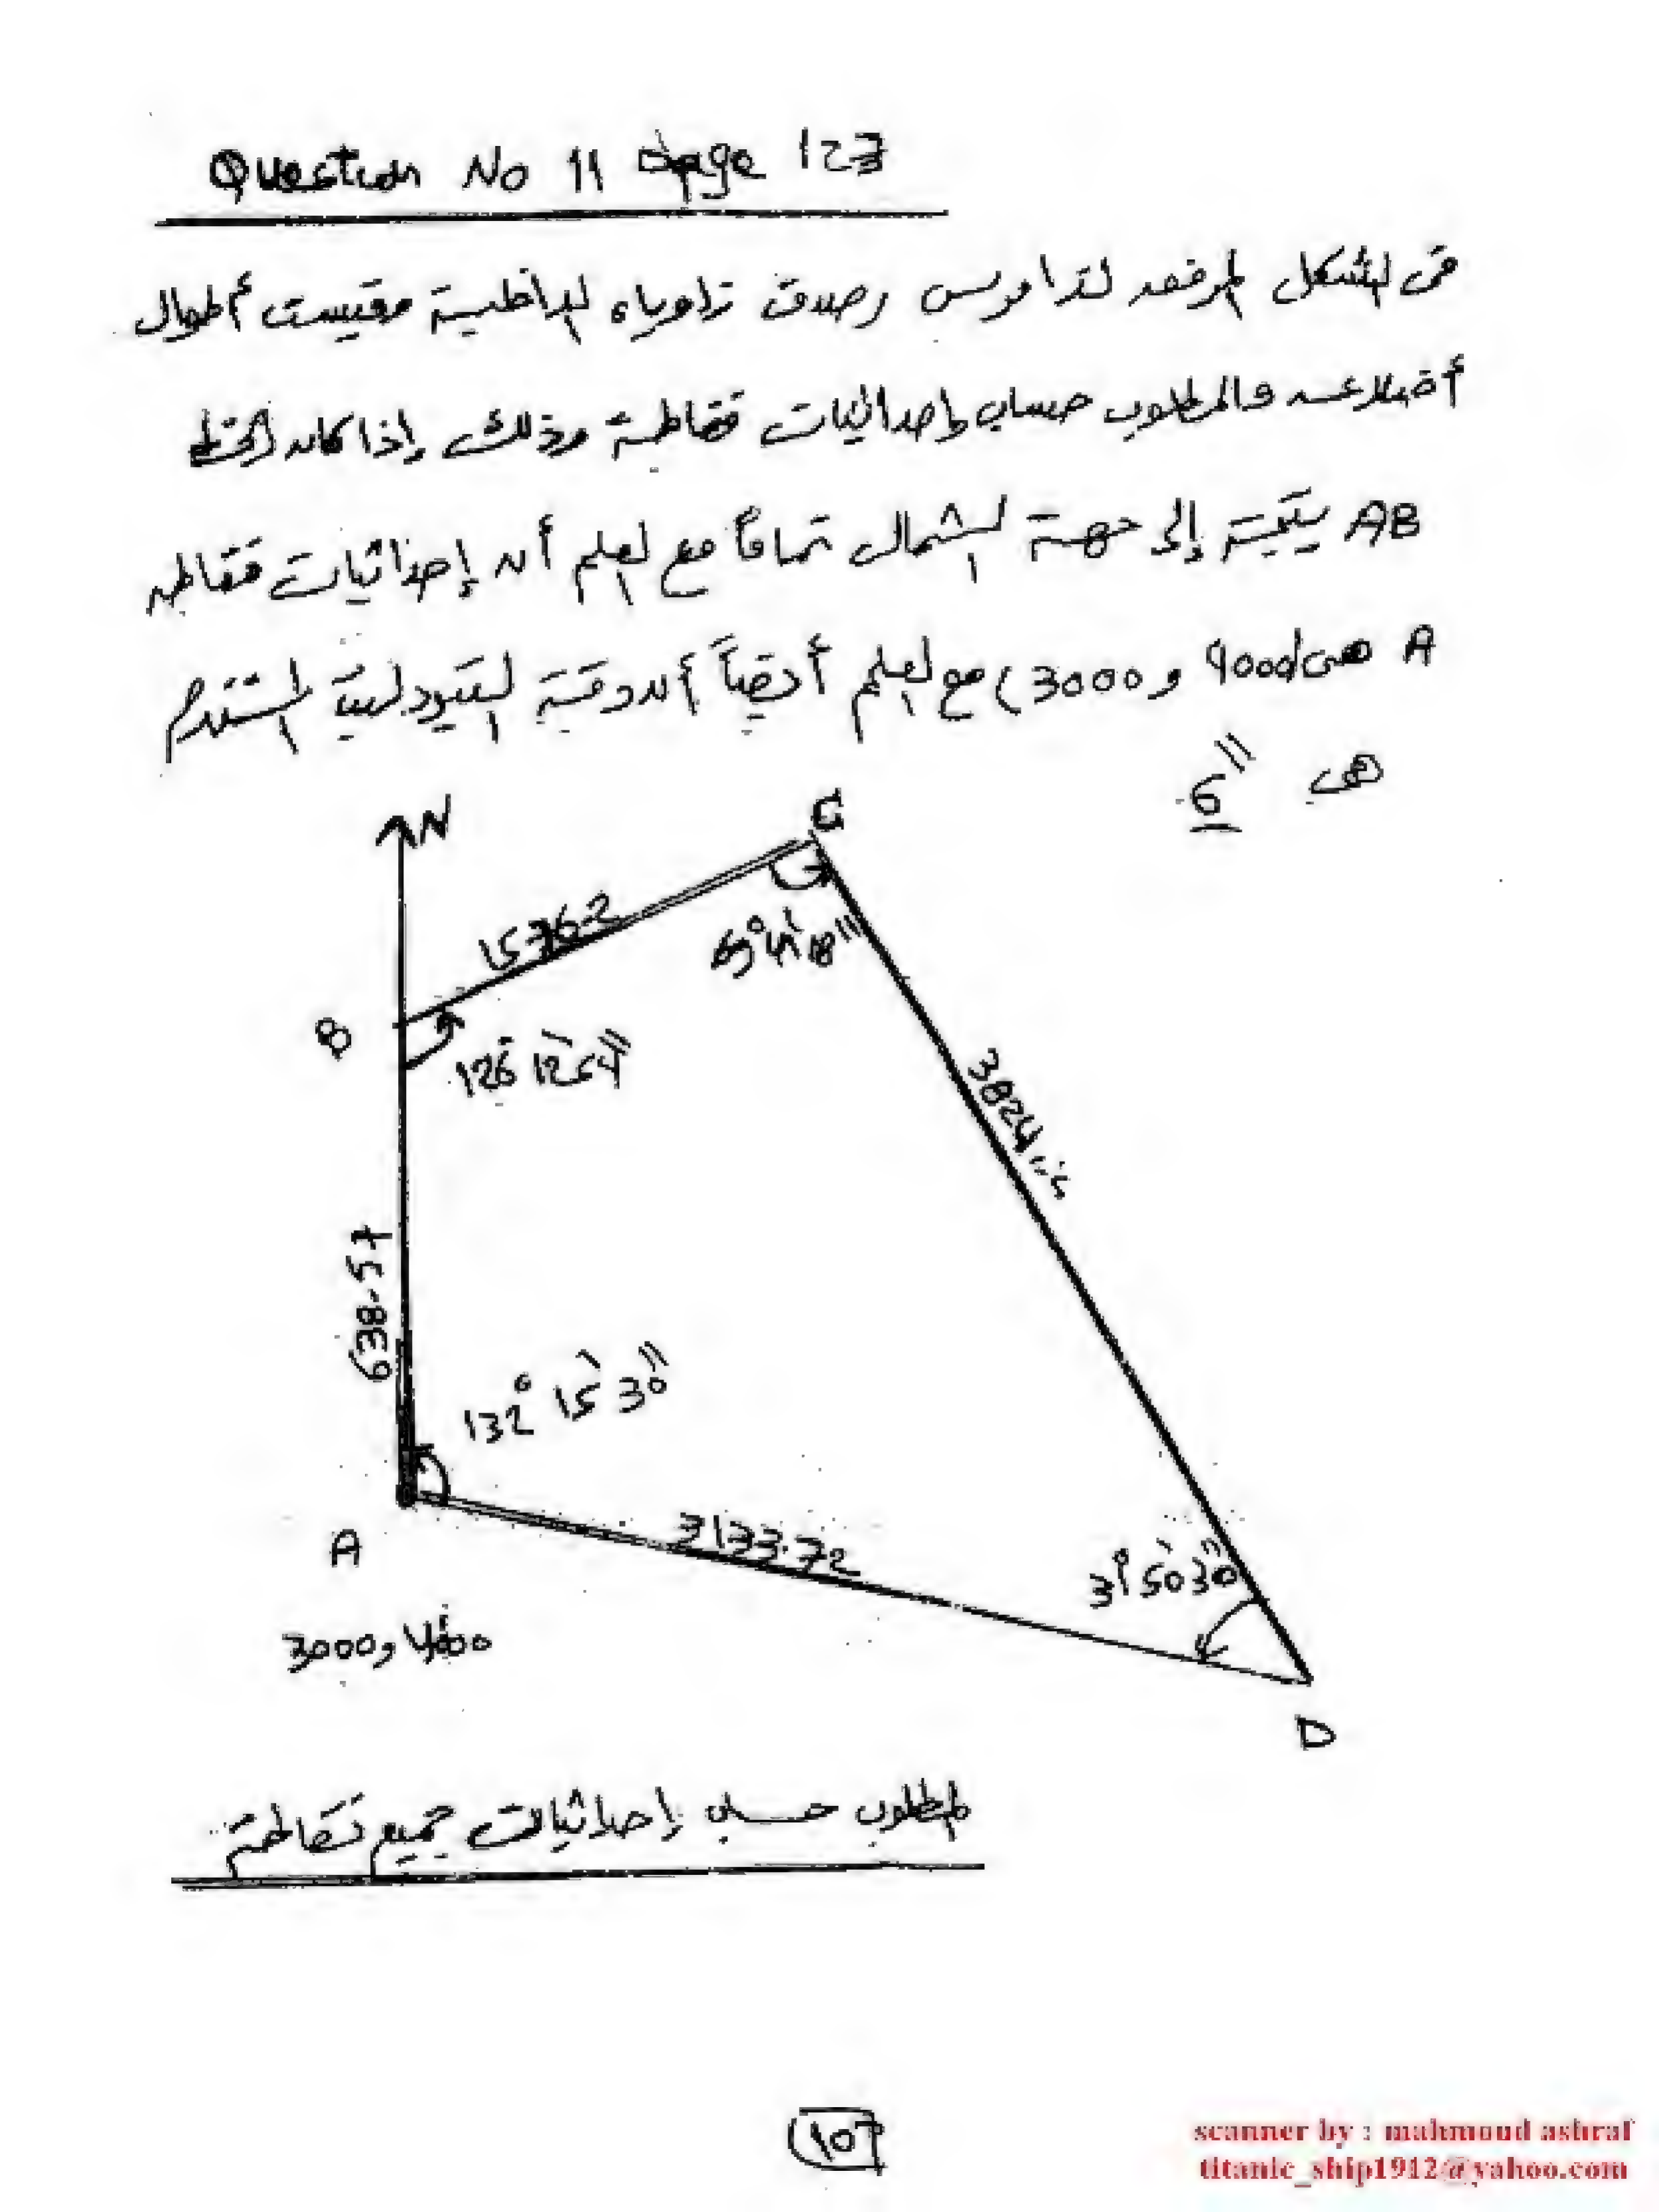 Question No 11 page 123
فى الشكل المرفق لترافرس رصدت زواياه الداخلية وقيست أطوال
أضلاعه والمطلوب حساب إحداثيات نقاطة وذلك إذا كان الخط
AB يتجة إلى جهة الشمال تماماً مع العلم أن إحداثيات نقاطه
A هى (4000 و 3000) مع العلم أيضاً أن دقة التيودوليت المستخدم
هى 6"
N
C
1576.2
B
126° 12' 54"
638.57
132° 15' 30"
A
3133.72
31° 50' 30"
3000, 4000
D
المطلوب حساب إحداثيات جميع نقاطة
107
scanner by : mahmoud ashraf
titanic_ship1912@yahoo.com